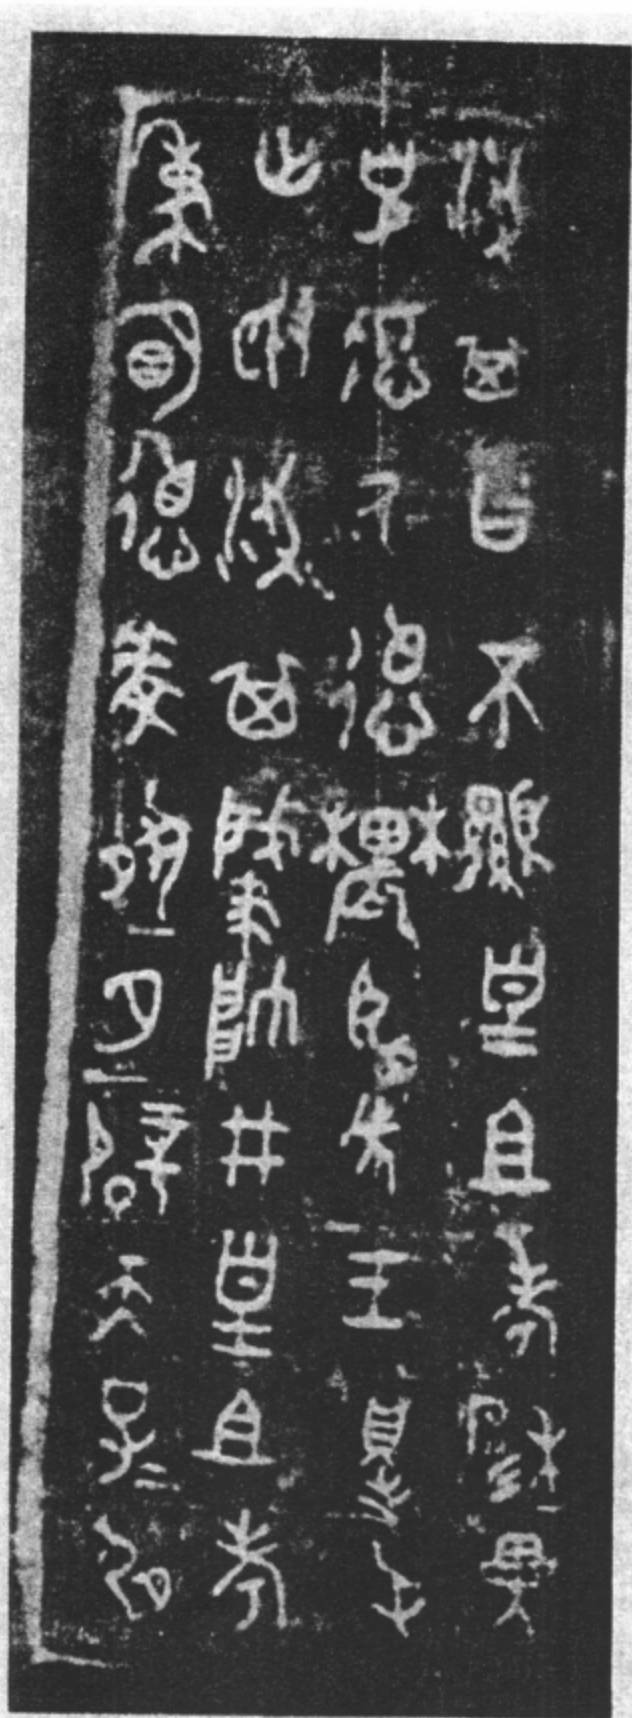 汈其曰不顯皇且考穆=異
克悊氒德農臣先王得屯
亡敃汈其肇帥井皇且考
秉明德虔夙夕辟天子=肩